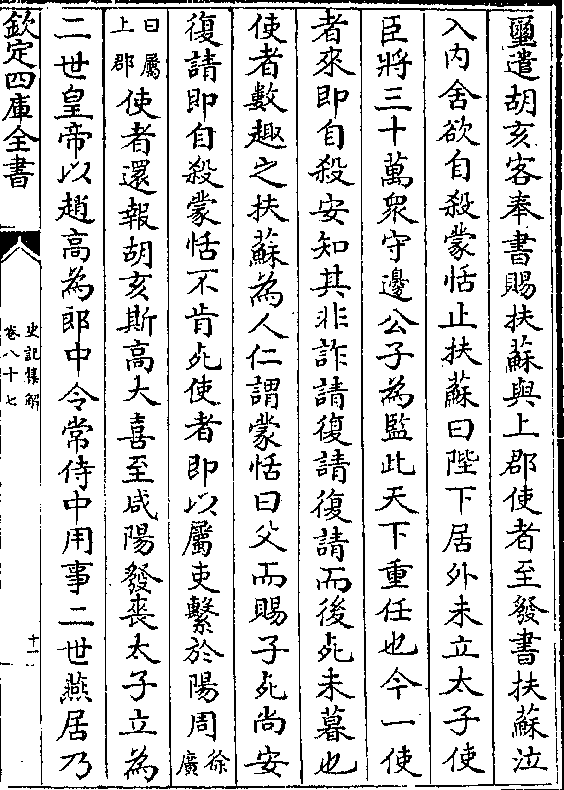 璽遣胡亥客奉書賜扶蘇與上郡使者至發書扶蘇泣
入內舍欲自殺蒙恬止扶蘇曰陛下居外未立太子使
臣將三十萬衆守邊公子為監此天下重任也今一使
者來即自殺安知其非詐請復請復請而後死未暮也
使者數趣之扶蘇為人仁謂蒙恬曰父而賜子死尚安
復請即自殺蒙恬不肯死使者即以屬吏繫於陽周徐廣
曰屬上郡使者還報胡亥斯高大喜至咸陽發喪太子立為
二世皇帝以趙高為郎中令常侍中用事二世燕居乃
欽定四庫全書
史記集解
卷八十七
十一